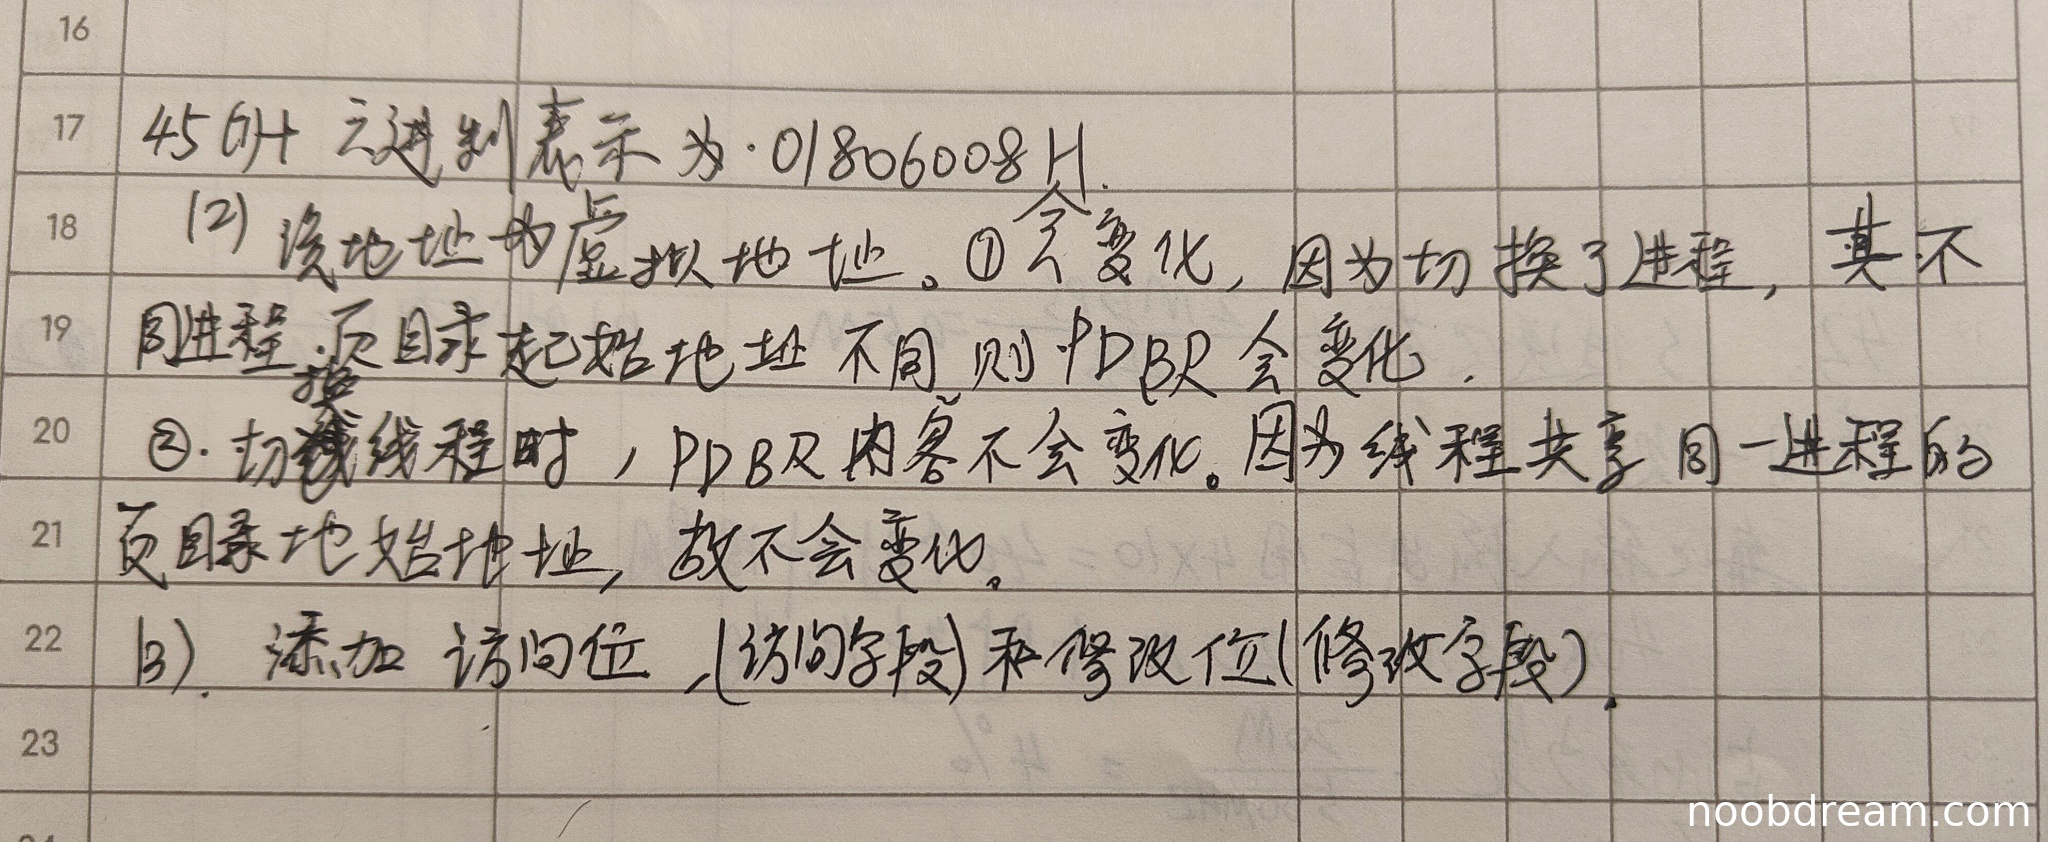 16
17 45 6H 二进制表示为.01806008H.
18 (2) 该地址为虚拟地址。①会变化,因为切换了进程,其不
19 同进程.页目录起始地址不同则PDBR会变化.
20 ②.切换线程时,PDBR内容不会变化。因为线程共享同一进程的
21 页目录地始地址,故不会变化。
22 (3). 添加访问位,(访问字段)和修改位(修改字段).
23
noobdream.com